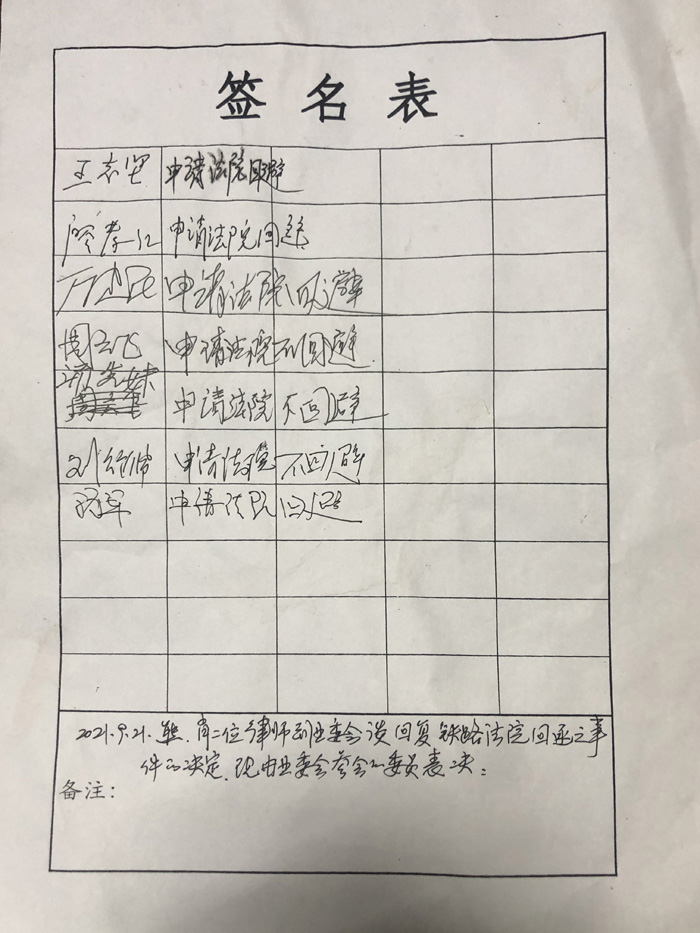 签名表
王志坚 申请法院回避
廖孝江 申请法院回避
万建民 申请法院回避
周云飞 申请法院不回避
申请法院不回避
申请法院不回避
申请法院回避
2021.9.21. 熊、肖二位律师到业委会谈回复铁路法院回函之事
件的决定，现由业委会参会的委员表决：
备注：